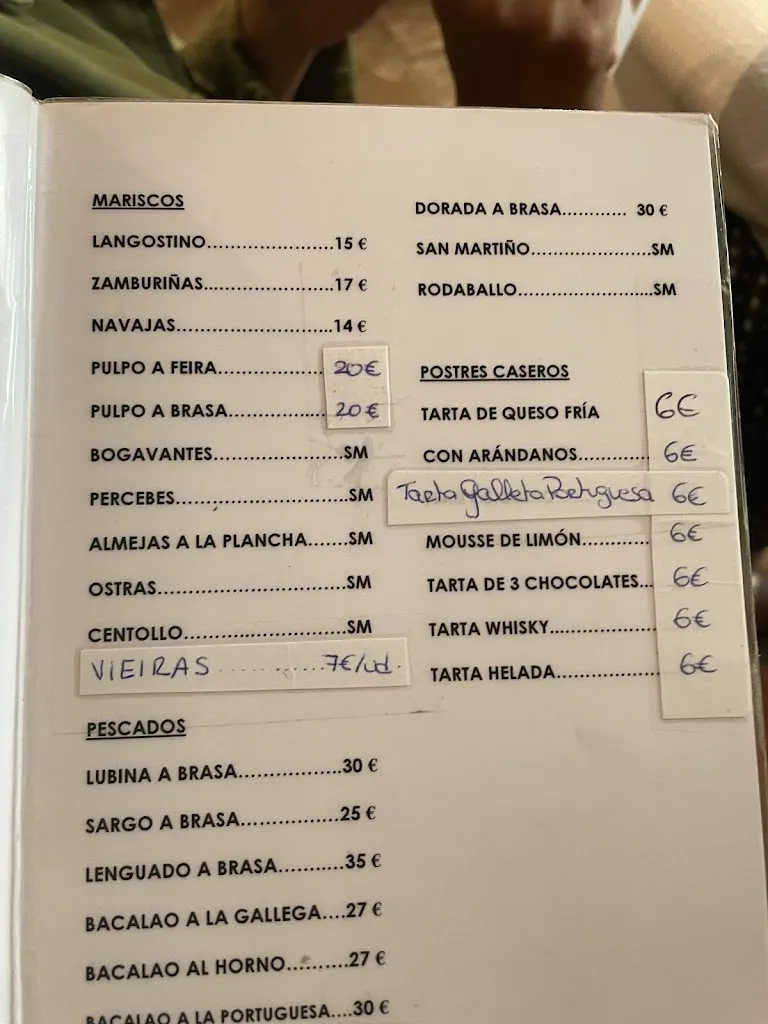 MARISCOS
LANGOSTINO......................15 €
ZAMBURIÑAS......................17 €
NAVAJAS...........................14 €
PULPO A FEIRA.................. 20€
PULPO A BRASA................ 20€
BOGAVANTES......................SM
PERCEBES...........................SM
ALMEJAS A LA PLANCHA.......SM
OSTRAS...............................SM
CENTOLLO...........................SM
VIEIRAS ................7€/ud.
PESCADOS
LUBINA A BRASA..................30 €
SARGO A BRASA.................25 €
LENGUADO A BRASA...........35 €
BACALAO A LA GALLEGA....27 €
BACALAO AL HORNO..........27 €
BACALAO A LA PORTUGUESA....30 €
DORADA A BRASA............ 30 €
SAN MARTIÑO.....................SM
RODABALLO.......................SM
POSTRES CASEROS
TARTA DE QUESO FRÍA 6€
CON ARÁNDANOS............ 6€
Tarta Galleta Portuguesa 6€
MOUSSE DE LIMÓN............ 6€
TARTA DE 3 CHOCOLATES... 6€
TARTA WHISKY.................. 6€
TARTA HELADA.................. 6€